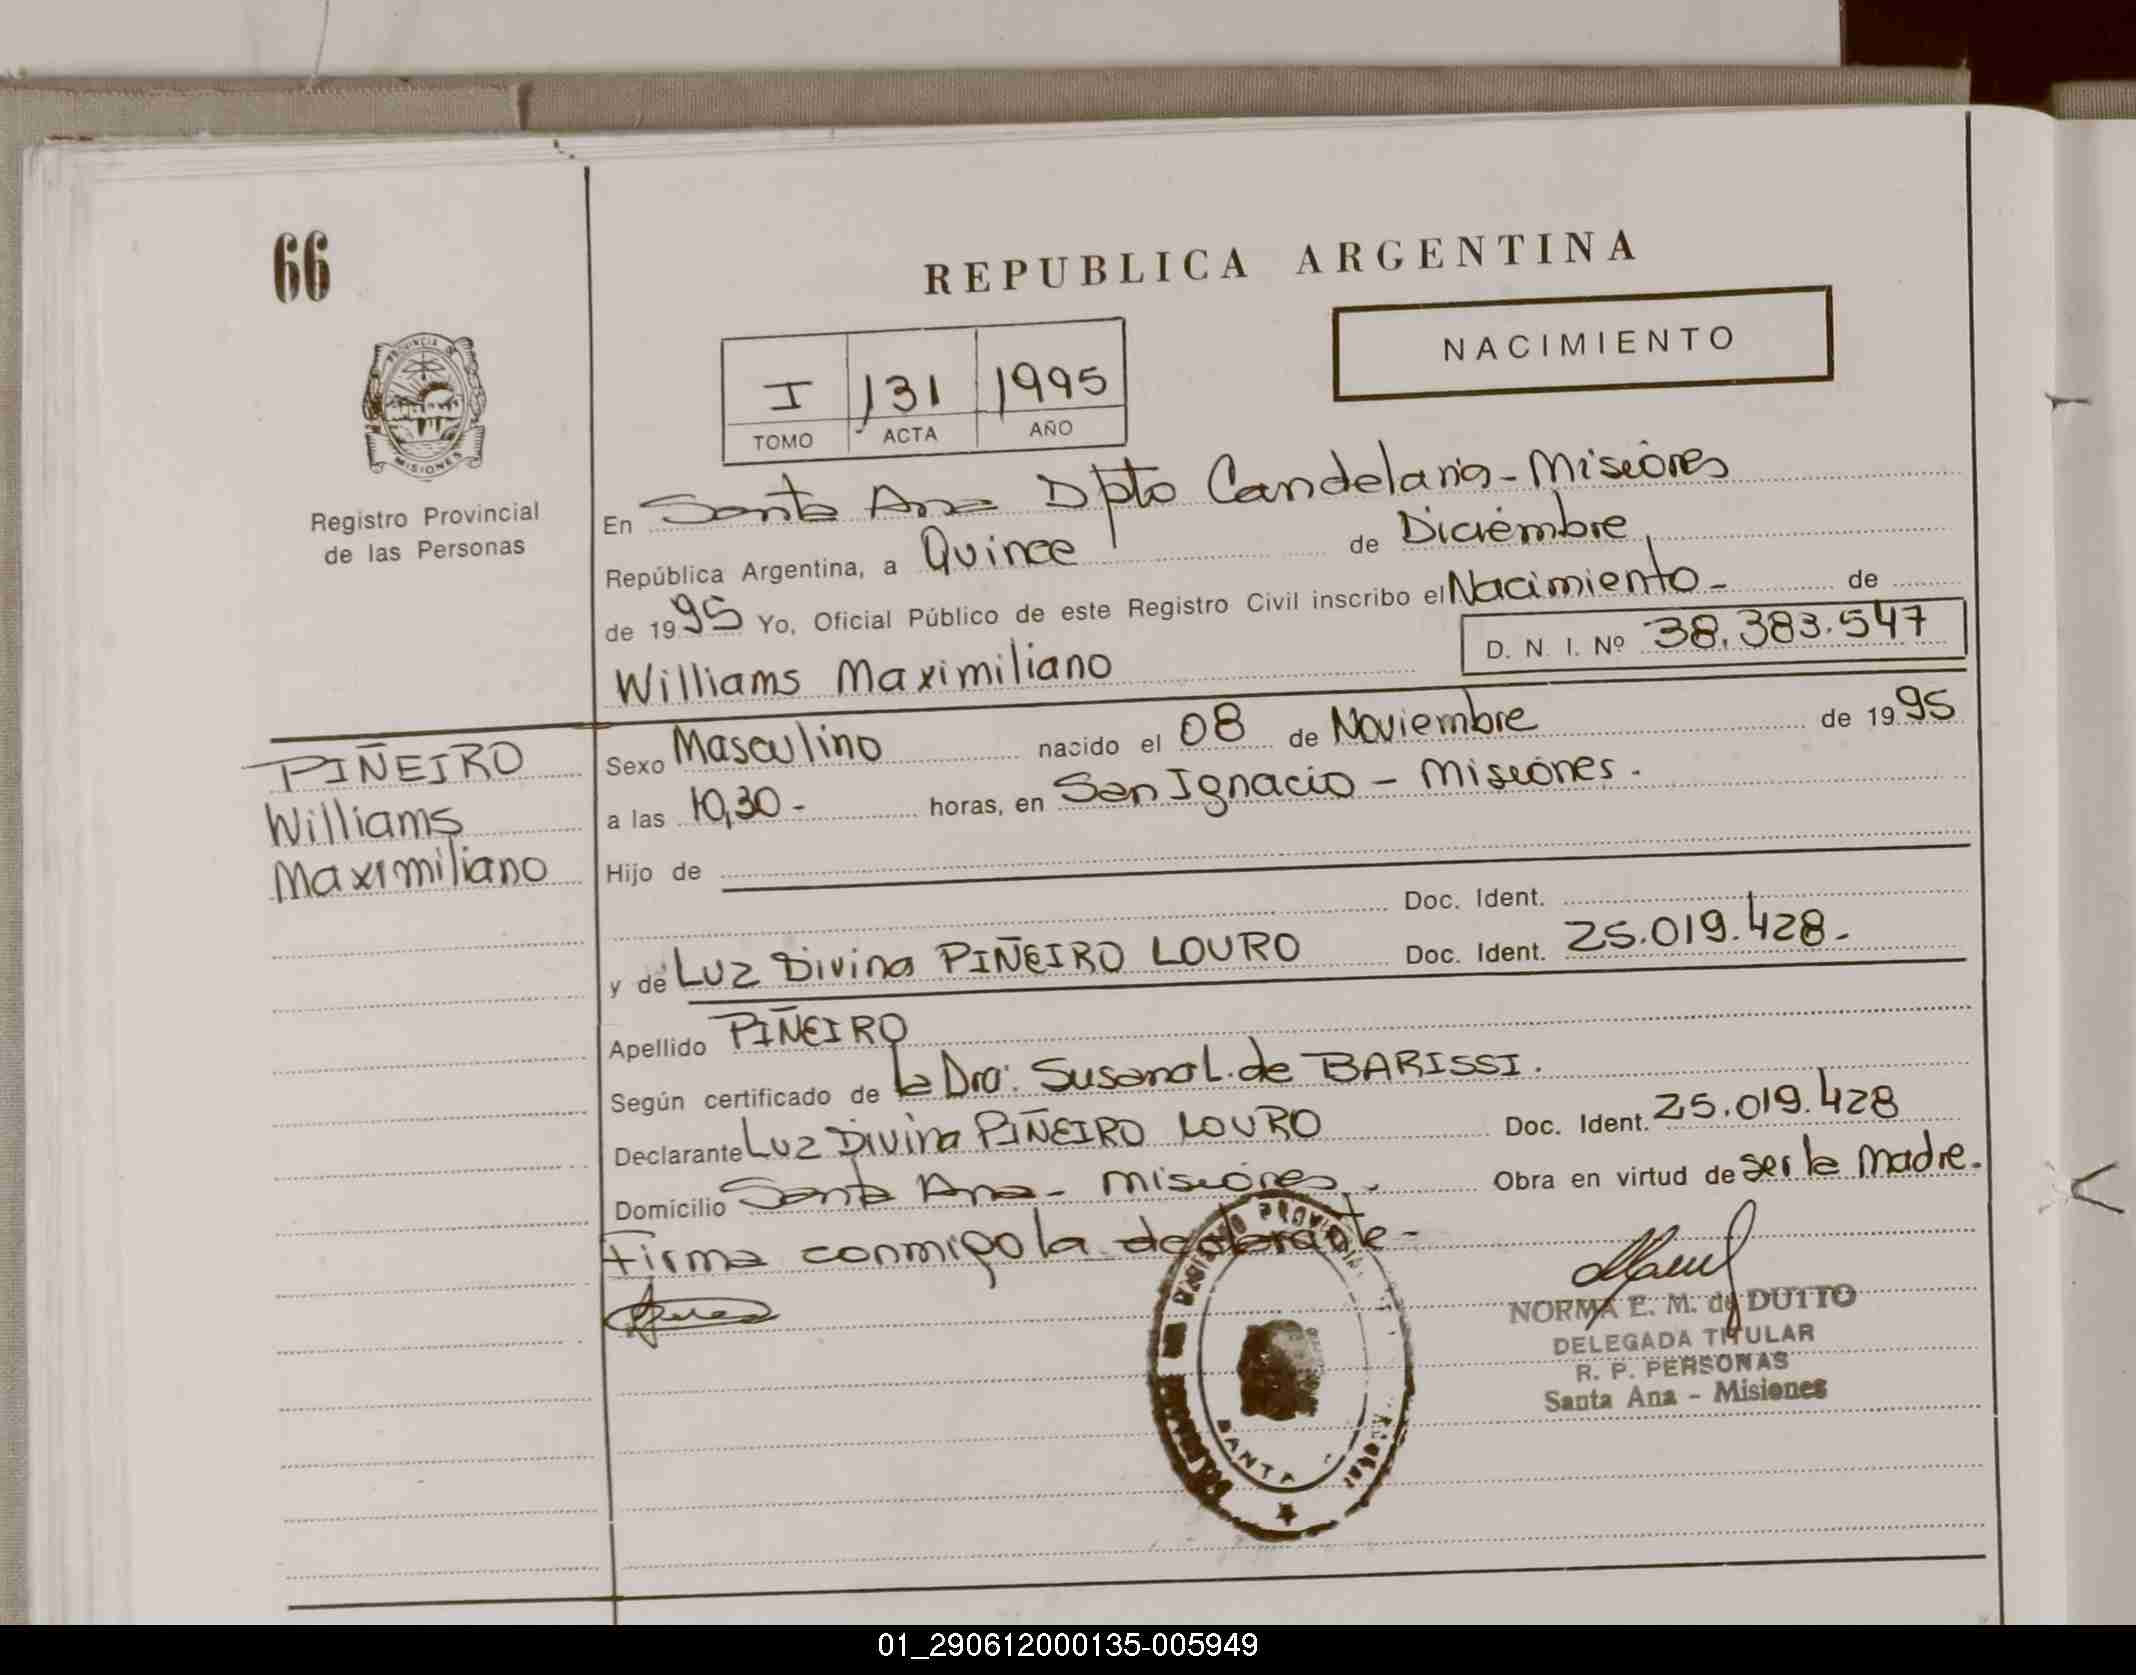 66
REPUBLICA ARGENTINA
NACIMIENTO
I 131 1995
TOMO ACTA AÑO
PROVINCIA DE
MISIONES
Registro Provincial
de las Personas
En Santa Ana Dpto Candelaria - Misiones
República Argentina, a Quince de Diciembre
de 1995 Yo, Oficial Público de este Registro Civil inscribo el Nacimiento - de
D. N. I. Nº 38.383.547
Williams Maximiliano
PIÑEIRO
Williams
Maximiliano
Sexo Masculino nacido el 08 de Noviembre de 1995
a las 10,30 - horas, en San Ignacio - Misiones.
Hijo de
Doc. Ident.
y de Luz Divina PIÑEIRO LOURO Doc. Ident. 25.019.428.-
Apellido PIÑEIRO
Según certificado de la Dra. Susana L. de BARISSI.
Declarante Luz Divina PIÑEIRO LOURO Doc. Ident. 25.019.428
Domicilio Santa Ana - Misiones. Obra en virtud de ser la Madre.
Firma conmigo la declarante -
NORMA E. M. de DUTTO
DELEGADA TITULAR
R. P. PERSONAS
Santa Ana - Misiones
SANTA
01_290612000135-005949